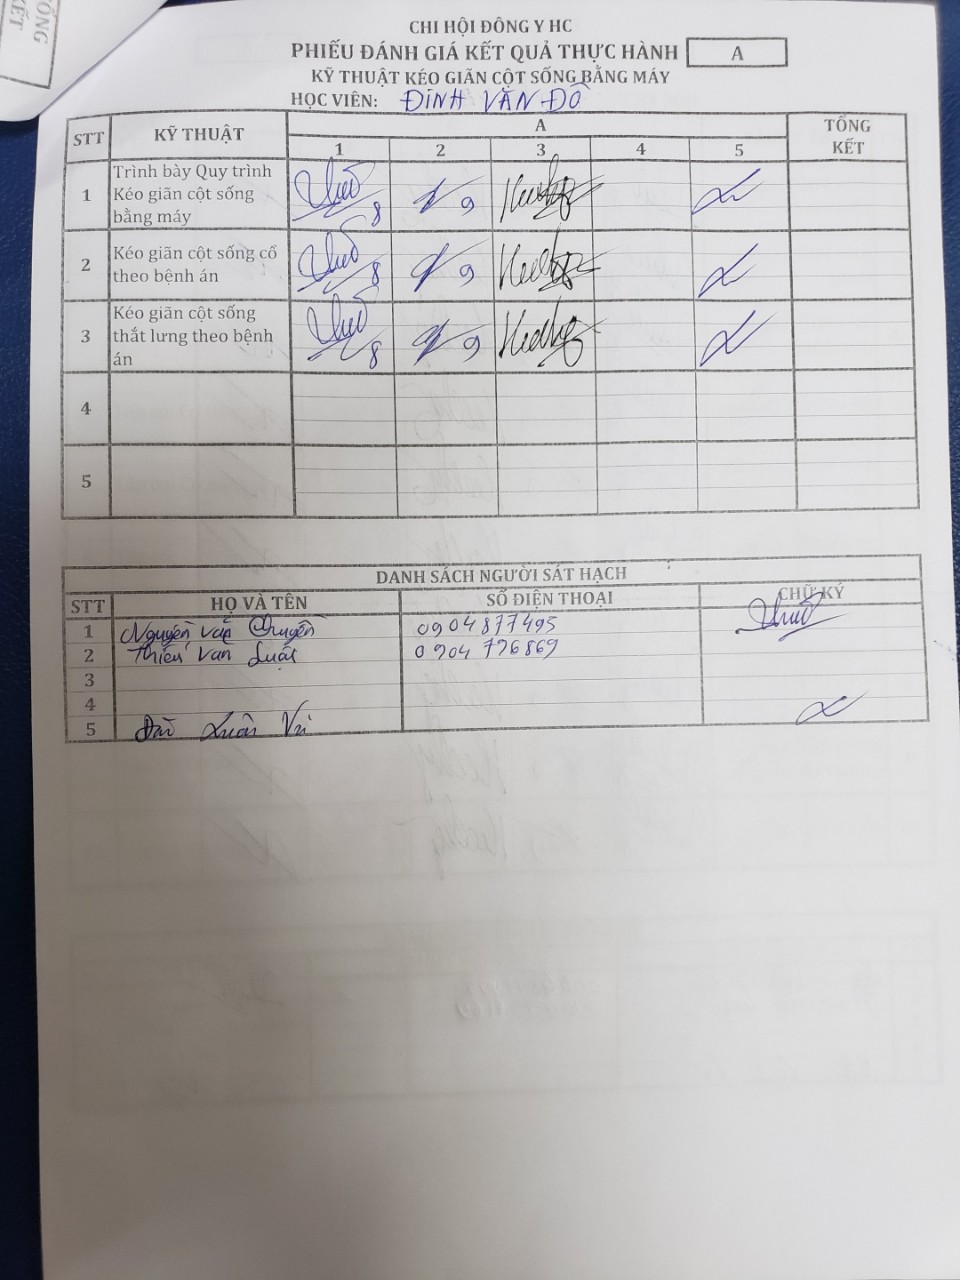 ỐNG
KẾT
CHI HỘI ĐÔNG Y HC
PHIẾU ĐÁNH GIÁ KẾT QUẢ THỰC HÀNH A
KỸ THUẬT KÉO GIÃN CỘT SỐNG BẰNG MÁY
HỌC VIÊN: ĐINH VĂN ĐÔ
STT KỸ THUẬT A TỔNG KẾT
1 2 3 4 5
1 Trình bày Quy trình
Kéo giãn cột sống
bằng máy
8 9
2 Kéo giãn cột sống cổ
theo bệnh án
8 9
3 Kéo giãn cột sống
thắt lưng theo bệnh
án
8 9
4
5
DANH SÁCH NGƯỜI SÁT HẠCH
STT HỌ VÀ TÊN SỐ ĐIỆN THOẠI CHỮ KÝ
1 Nguyễn Văn 0904877495
2 Văn Luật 0904796869
3
4
5 Xuân